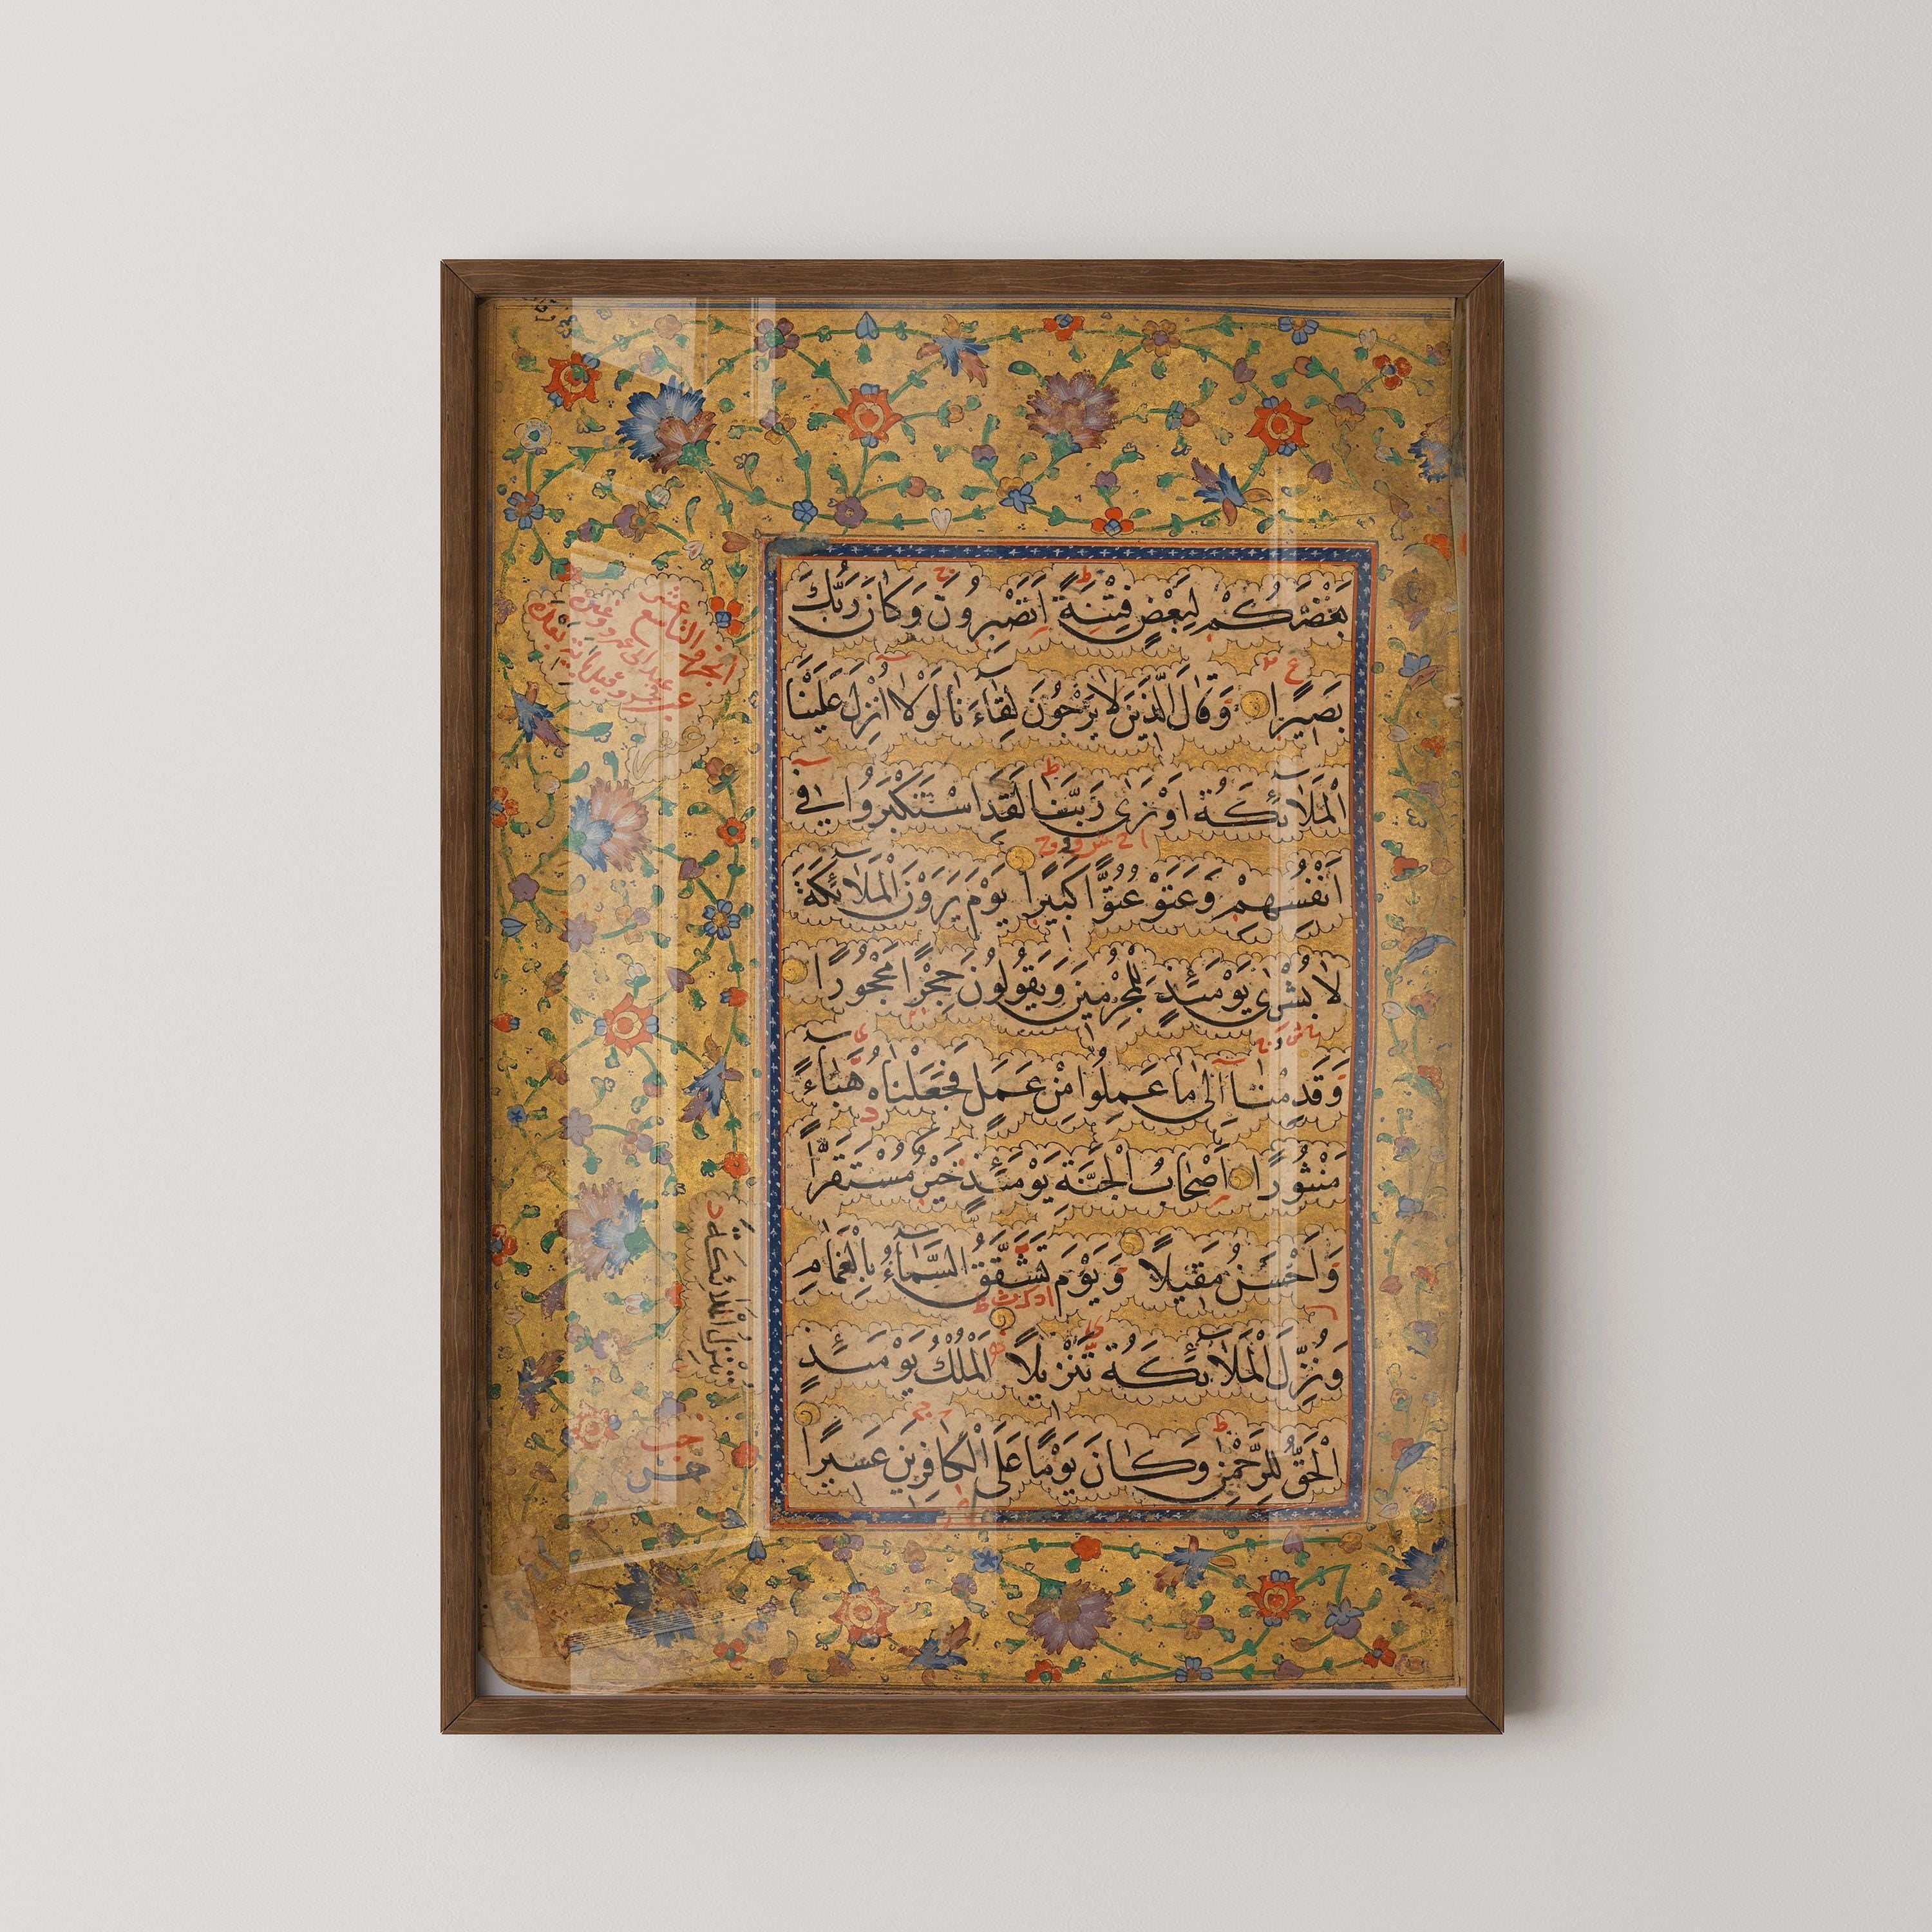 بَعْضَكُمْ لِبَعْضٍ فِتْنَةً اَتَصْبِرُونَ وَكَانَ رَبُّكَ
بَصِيرًا وَقَالَ الَّذِينَ لَا يَرْجُونَ لِقَاءَنَا لَوْلَا اُنْزِلَ عَلَيْنَا
الْمَلَائِكَةُ اَوْ نَرٰى رَبَّنَا لَقَدِ اسْتَكْبَرُوا فِى
اَنْفُسِهِمْ وَعَتَوْ عُتُوًّا كَبِيرًا يَوْمَ يَرَوْنَ الْمَلَائِكَةَ
لَا بُشْرٰى يَوْمَئِذٍ لِلْمُجْرِمِينَ وَيَقُولُونَ حِجْرًا مَحْجُورًا
وَقَدِمْنَا اِلٰى مَا عَمِلُوا مِنْ عَمَلٍ فَجَعَلْنَاهُ هَبَاءً
مَنْثُورًا اَصْحَابُ الْجَنَّةِ يَوْمَئِذٍ خَيْرٌ مُسْتَقَرًّا
وَاَحْسَنُ مَقِيلًا وَيَوْمَ تَشَقَّقُ السَّمَاءُ بِالْغَمَامِ
وَنُزِّلَ الْمَلَائِكَةُ تَنْزِيلًا الْمُلْكُ يَوْمَئِذٍ
الْحَقُّ لِلرَّحْمٰنِ وَكَانَ يَوْمًا عَلَى الْكَافِرِينَ عَسِيرًا